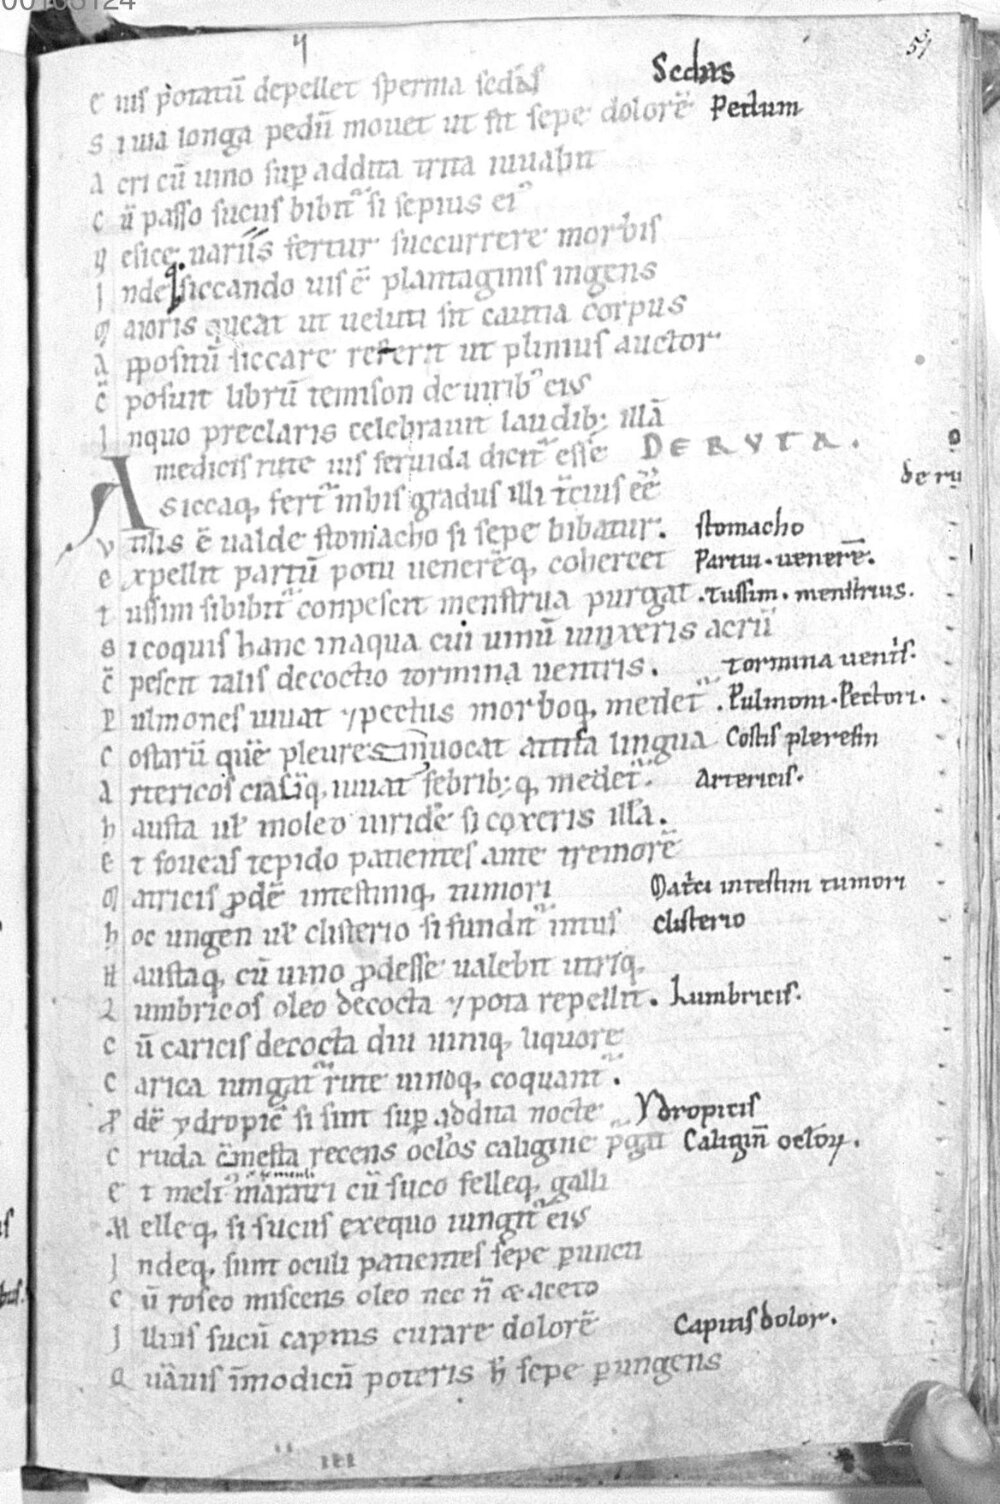 00103124
54
E ius potatū depellet sperma sedēs Sedtis
S i uia longa pedū mouet ut fit sepe dolorē Pedum
A cri cū uino sup addita trita iuuabit
C ū passo sucus bibit si sepius ei
y esice uariis fertur succurrere morbis
I nde q siccando uis ē plantaginis ingens
M aioris queat ut ueluti sit cautia corpus
A ppositū siccare referit ut plinius auctor
C̄ posuit librū temison de uirib; eius
I nquo preclaris celebrauit laudib; illā
A medicis rute uis feruida dicit esse DE RVTA.
de ru
Siccaq, fert inhis gradus illi tcius eē
V tilis ē ualde stomacho si sepe bibatur. stomacho
E xpellit partū potu uenerēq, cohercet Partui. uenerē.
T ussim sibibit conpescit menstrua purgat. Tussim. menstruis.
S i coquis hanc inaqua cui uinū iunxeris acrū
C̄ pescit talis decoctio tormina uentris. Tormina uentris.
P ulmones iuuat ⁊ pectus morboq, medet. Pulmoni. Pectori.
C ostarū quē pleuresin uocat attica lingua Costis pleresin
A rtericos ciasiq, iuuat febrib; q, medet. Artericis.
H austa ul moleo uiride si coxeris illā.
E t foueas tepido patientes ante tremorē
M atricis ꝓdē intestiniq, tumori Matci intestini tumori
H oc ungen ul clisterio si fundit intus clisterio
H austaq, cū uino ꝓdesse ualebit utriq,
L umbricos oleo decocta ⁊ pota repellit. Lumbricis.
C ū caricis decocta diu uiniq, liquore
C arica iungat rute uinoq, coquant.
P dē ydropic̄ si sint sup addita nocte Ydropicis
C ruda c̄mesta recens oclos caligine pgat Caligin̄ oclōꝝ.
E t meli maratri cū suco felleq, galli
M elleq, si sucus exequo iungit eius
I ndeq, sunt oculi patientes sepe puncti
C ū roseo miscens oleo nec n̄ & aceto
I llius sucū capitis curare dolorē Capitis dolor.
Q uāuis īmodicū poteris h̄ sepe pungens
III